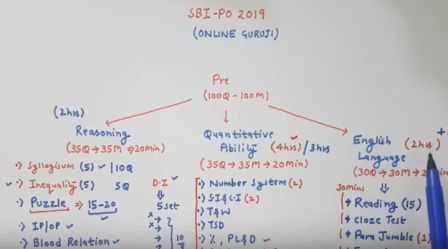 SBI-PO 2019
(ONLINE GURUJI)
Pre
(100Q - 100M)
(2hrs)
Reasoning
(35Q → 35M → 20min)
• Syllogism (5) ✓ /10Q
✓ • Inequality (5) 5Q
• Puzzle ⇒ 15-20
• IP/OP ✓
• Blood Relation ✓
D.I ✓
↓
5set
x →
x →
→
→ 10
Quantitative
Ability (4hrs) ✓ /3hrs
(35Q → 35M → 20min)
• Number System (2)
• SI & C.I (2)
• T&W
• TSD
• %, PL&D ✓
English (2hrs) +
Language
(30Q → 30M → 20m
30mins
• Reading (15)
• Cloze Test
• Para Jumble (1)